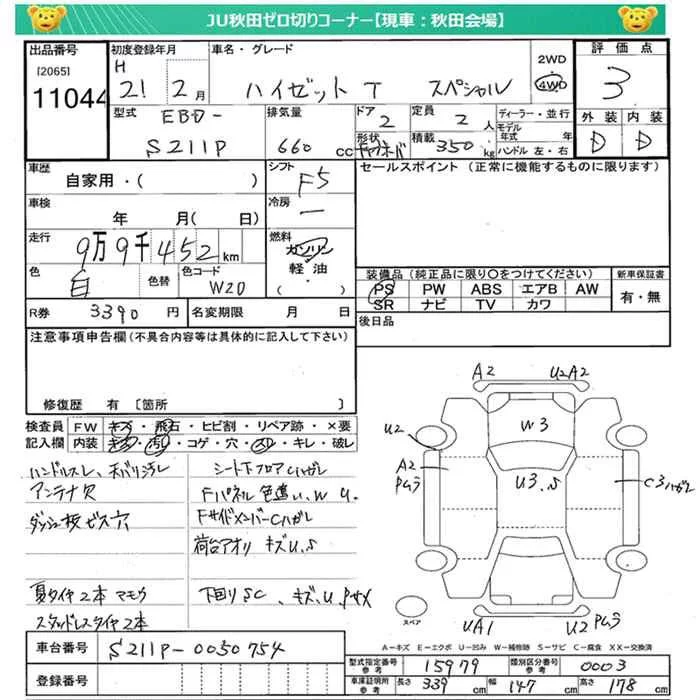 JU秋田ゼロ切りコーナー【現車：秋田会場】
出品番号 初度登録年月 車名・グレード 2WD 4WD 評価点
[2065]
11044 H 21 2月 ハイゼット T スペシャル 3
型式 EBD- S211P 排気量 660 cc ドア 2 定員 2人 ディーラー・並行 外装 内装
形状 積載 350kg モデル年式 年 ハンドル 左・右 D D
車歴 シフト セールスポイント（正常に機能するものに限ります）
自家用・( ) F5
車検 冷房
年 月( 日) ー
走行 燃料
9万9千452km ガソリン
軽油
色 色替 色コード ( )
白 W20
装備品（純正品に限り○をつけてください） 新車保証書
PS PW ABS エアB AW 有・無
SR ナビ TV カワ
R券 3390円 名変期限 月 日 後日品
注意事項申告欄（不具合内容等は具体的に記入して下さい）
修復歴 有 〔箇所 〕
検査員 FW キズ・飛石・ヒビ割・リペア跡・×要
記入欄 内装 キズ・汚れ・コゲ・穴・スレ・キレ・破レ
ハンドルスレ、天バリ汚レ シート下フロアCハガレ
アンテナ欠 Fパネル色違い、W U.
ダッシュ板ビス穴 FサイドメンバーCハガレ
荷台アオリ キズU.S
夏タイヤ2本 マモウ 下回りSC、キズ、U.
スタッドレスタイヤ2本
A2 U2A2
W3
U2
A2
U3.S
C3ハガレ
スペア UA1 U2
A=キズ E=エクボ U=凹み W=補修跡 S=サビ C=腐食 XX=交換済
車台番号 S211P-0050754
型式指定番号 参考 15979 類別区分番号 参考 0003
登録番号 車庫証明所 参考 長さ 339cm 幅 147cm 高さ 178cm